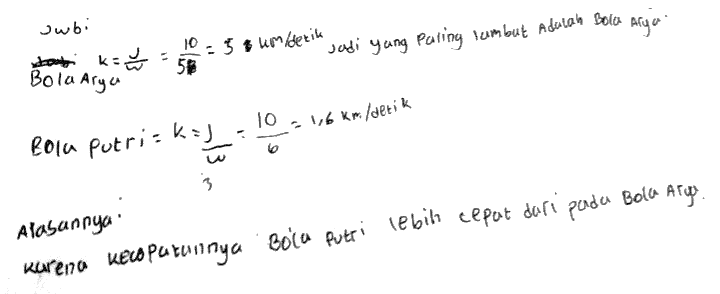 Jwb:
Bola Arya k = J/w = 10/5 = 5 km/detik Jadi yang Paling lambat Adalah Bola Arya.
Bola Putri = k = J/w = 10/6 = 1,6 km/detik
3
Alasannya:
Karena Kecepatannya Bola Putri lebih cepat dari pada Bola Arya.